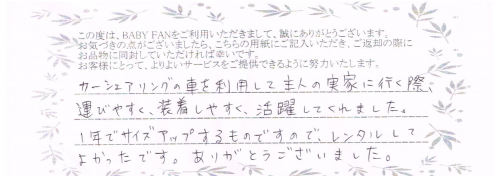 この度は、BABY FANをご利用いただきまして、誠にありがとうございます。
お気づきの点がございましたら、こちらの用紙にご記入いただき、ご返却の際に
お品物に同封していただければ幸いです。
お客様にとって、よりよいサービスをご提供できるように努力いたします。
カーシェアリングの車を利用して主人の実家に行く際、
運びやすく、装着しやすく、活躍してくれました。
1年でサイズアップするものですので、レンタルして
よかったです。ありがとうございました。